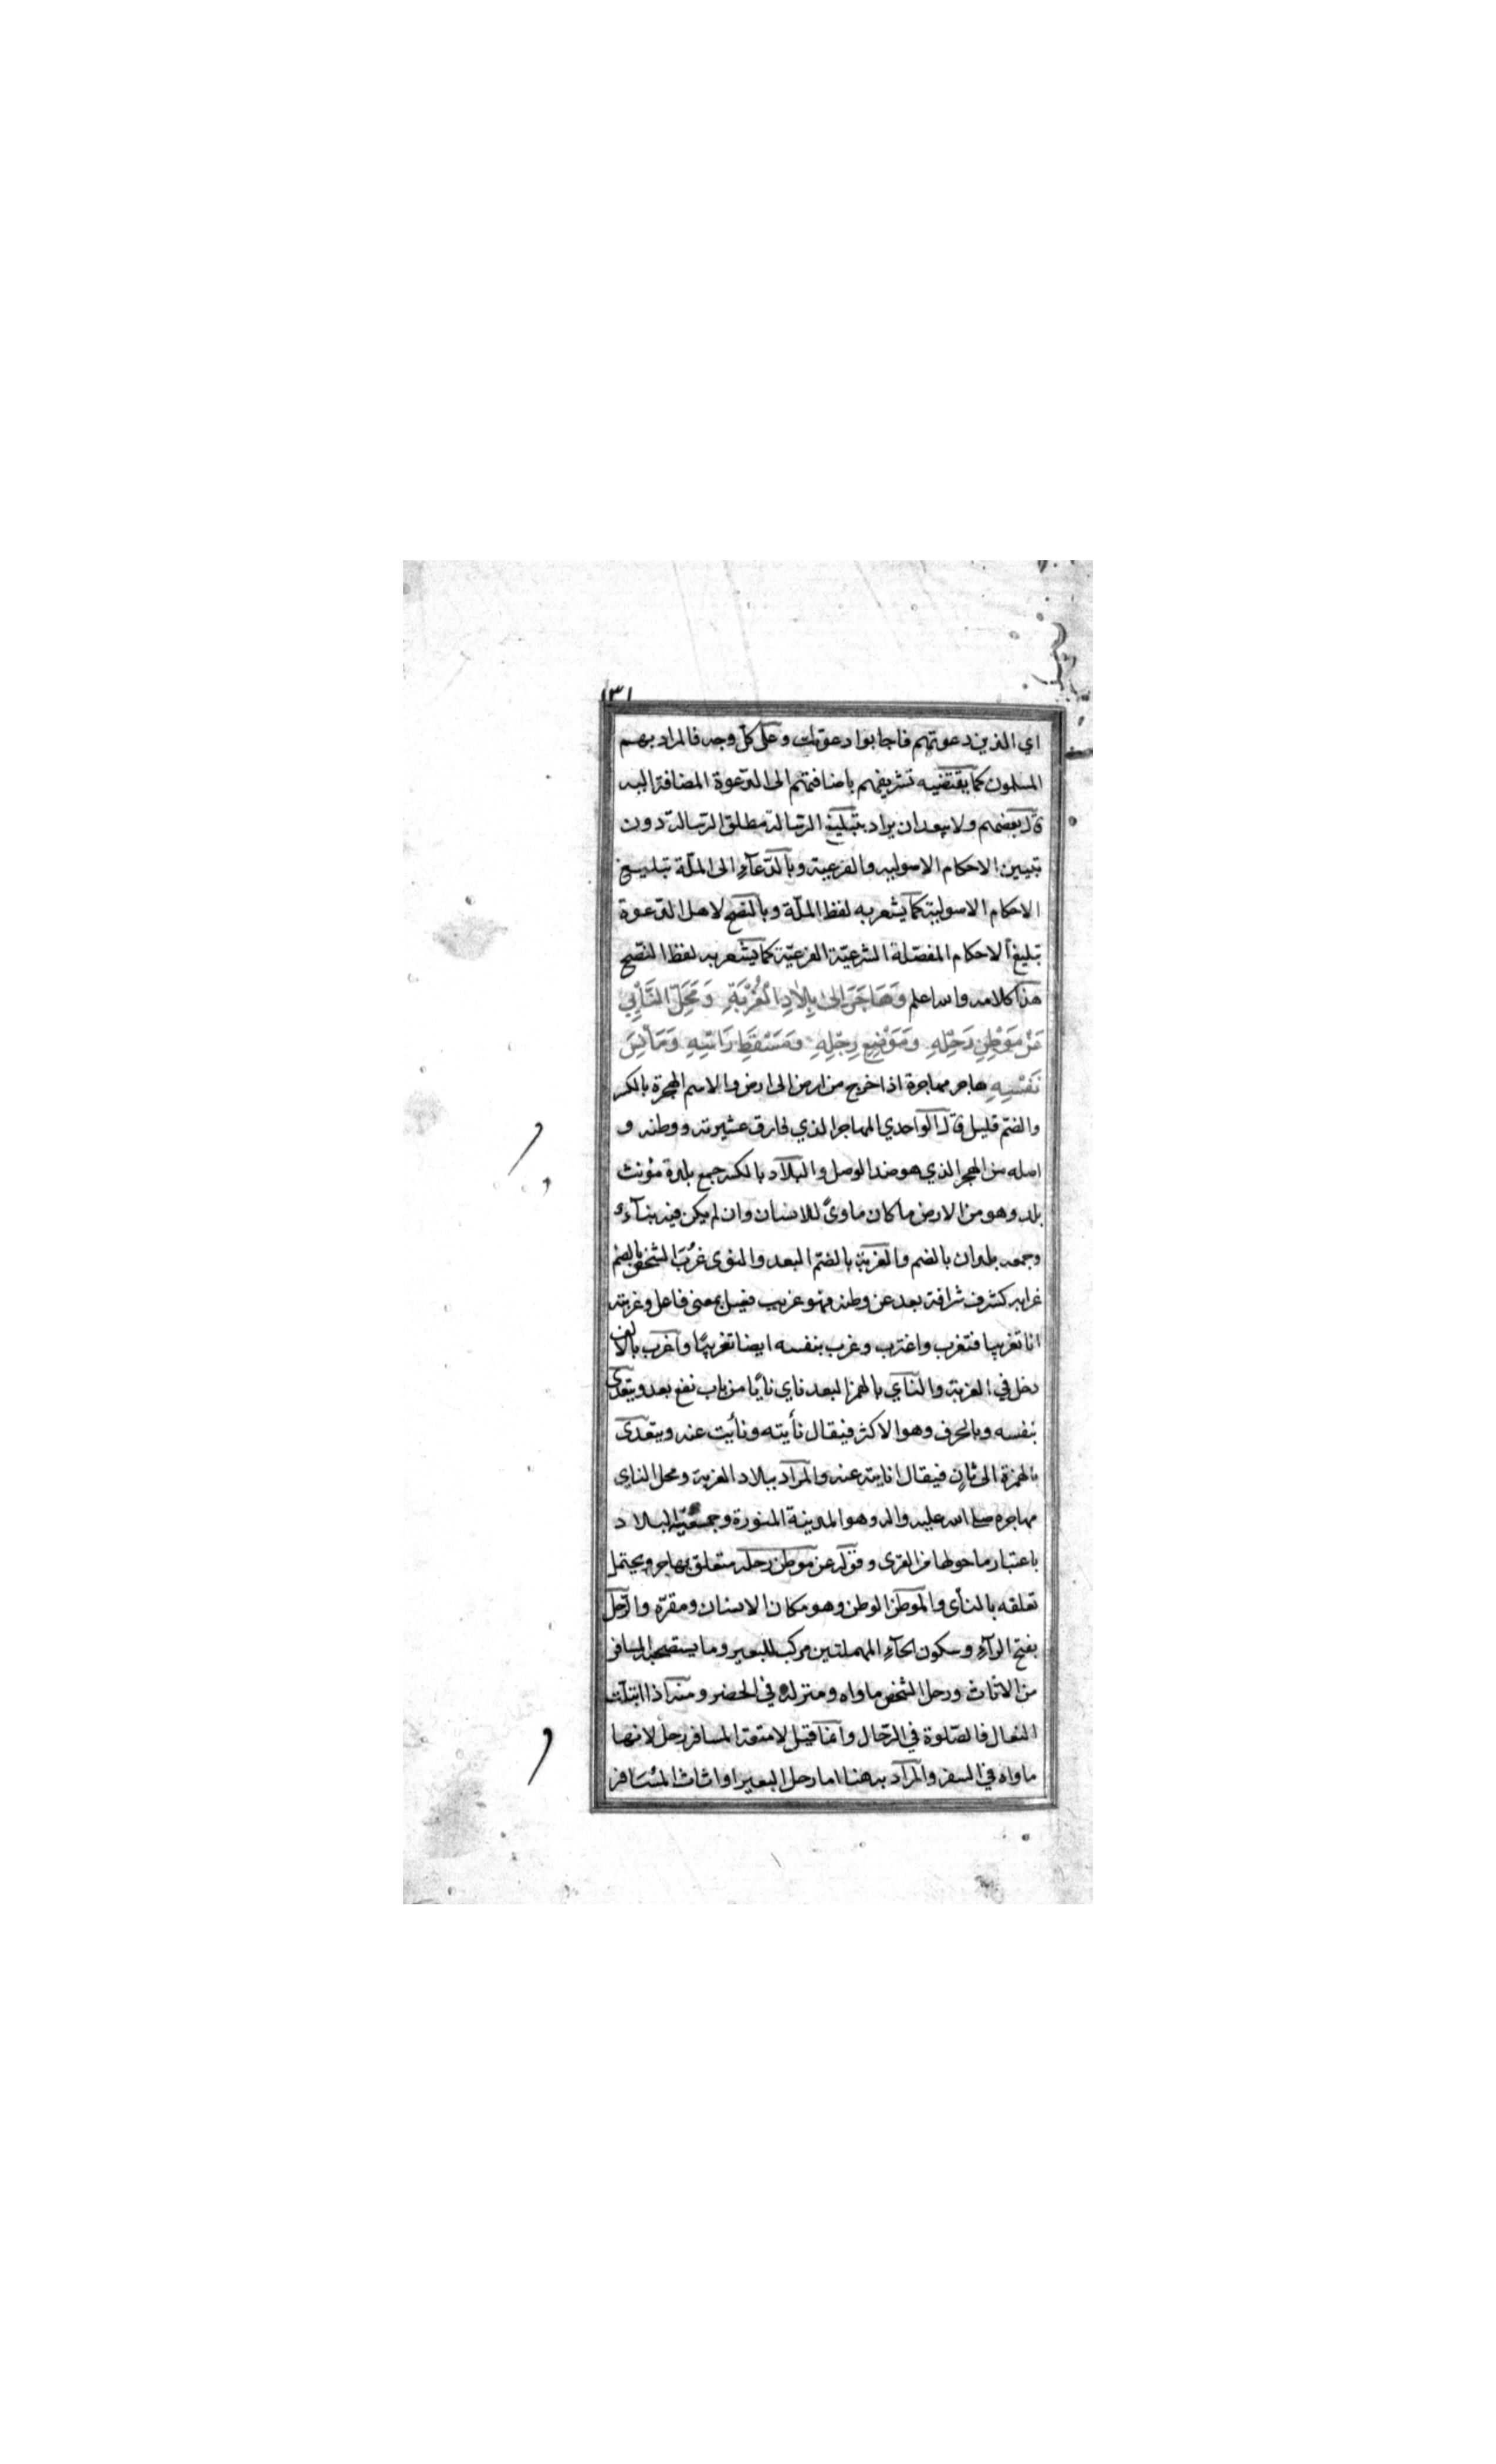 ١٣١
اي الذين دعوتهم فاجابوا دعوتك وعلى كل وجه فالمراد بهم
المسلمون كما يقتضيه تشريفهم باضافتهم الى الدعوة المضافة اليه
قال بعضهم ولا يبعد ان يراد بتبليغ الرسالة مطلق الرسالة دون
تبيين الاحكام الاسولية والفرعية وبالدعآء الى الملّة تبليغ
الاحكام الاسولية كما يشعر به لفظ الملّة وبالنصح لاهل الدعوة
تبليغ الاحكام المفصّلة الشرعيّة الفرعيّة كما يشعر به لفظ النصح
هذا كلامه والله اعلم وَهَاجَرَ اِلى بِلَادِ الْغُرْبَةِ وَمَحَلِّ النَّأْيِ
عَنْ مَوْطِنِ رَحْلِهِ وَمَوْضِعِ رِجْلِهِ وَمَسْقَطِ رَاْسِهِ وَمَأْنَسِ
نَفْسِهِ هاجر مهاجرة اذا خرج من ارض الى ارض والاسم الهجرة بالكسر
والضم قليل قال الواحدي المهاجر الذي فارق عشيرته ووطنه و
اصله من الهجر الذي هو ضد الوصل والبلاد بالكسر جمع بلدة مؤنث
بلد وهو من الارض ما كان ماوىً للانسان وان لم يكن فيه بنآء
وجمعه بلدان بالضم والغربة بالضم البعد والنوى غرُبَ الشخص بالضم
غرابه كشرف شرافة بعد عن وطنه فهو غريب فعيل بمعنى فاعل وغربته
انا تغريبا فتغرب واغترب وغرب بنفسه ايضا تغريبًا واغرب بالالف
دخل في الغربة والنأي بالهمز البعد ناي نايًا من باب نفع بعد ويتعدى
بنفسه وبالحرف وهو الاكثر فيقال نأيته ونأيت عنه ويتعدى
بالهمزة الى ثانٍ فيقال انايته عنه والمراد ببلاد الغربة ومحل الناي
مهاجره صلى الله عليه واله وهو المدينة المنورة وجمعيّة البلاد
باعتبار ما حولها من القرى وقوله عن موطن رحله متعلق بهاجر ويحتمل
تعلقه بالنأى والموطن الوطن وهو مكان الانسان ومقرّه والرّحل
بفتح الرآء وسكون الحآء المهملتين مركب للبعير وما يستصحبه المسافر
من الاثاث ورحل الشخص ماواه ومنزله في الحضر ومنه اذا ابتلت
النعال فالصّلوة في الرحال وانما قيل لامتعة المسافر رحل لانها
ماواه في السفر والمراد به هنا اما رحل البعير او اثاث المُسَافر